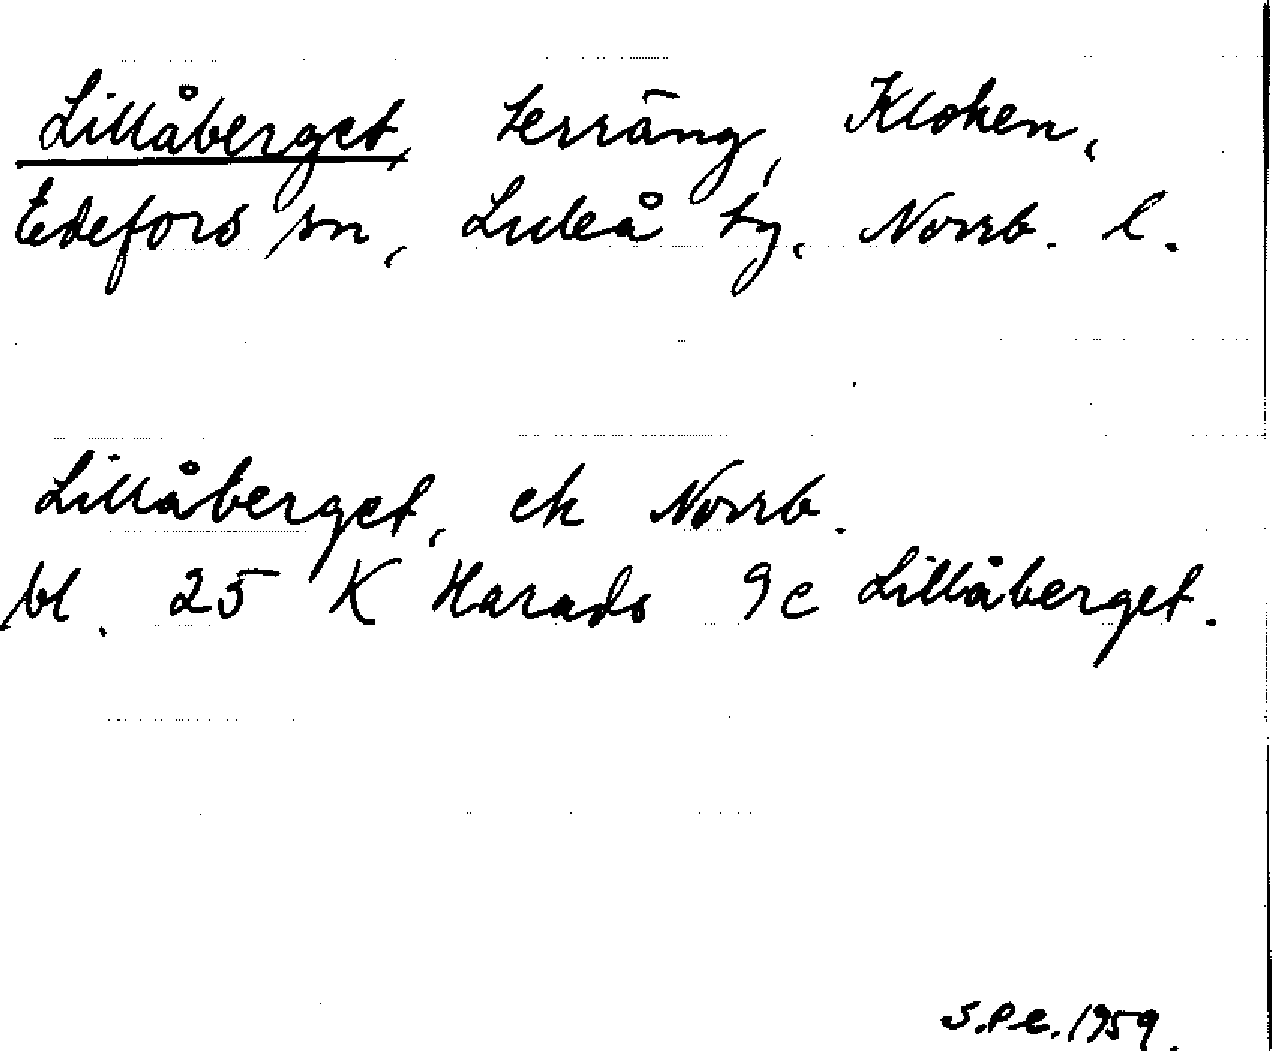 Lillåberget, terräng, Kloken,
Edefors sn, Luleå tg, Norrb. l.
Lillåberget, ek Norrb.
bl. 25 K Harads 9c Lillåberget.
S.P.E. 1959.